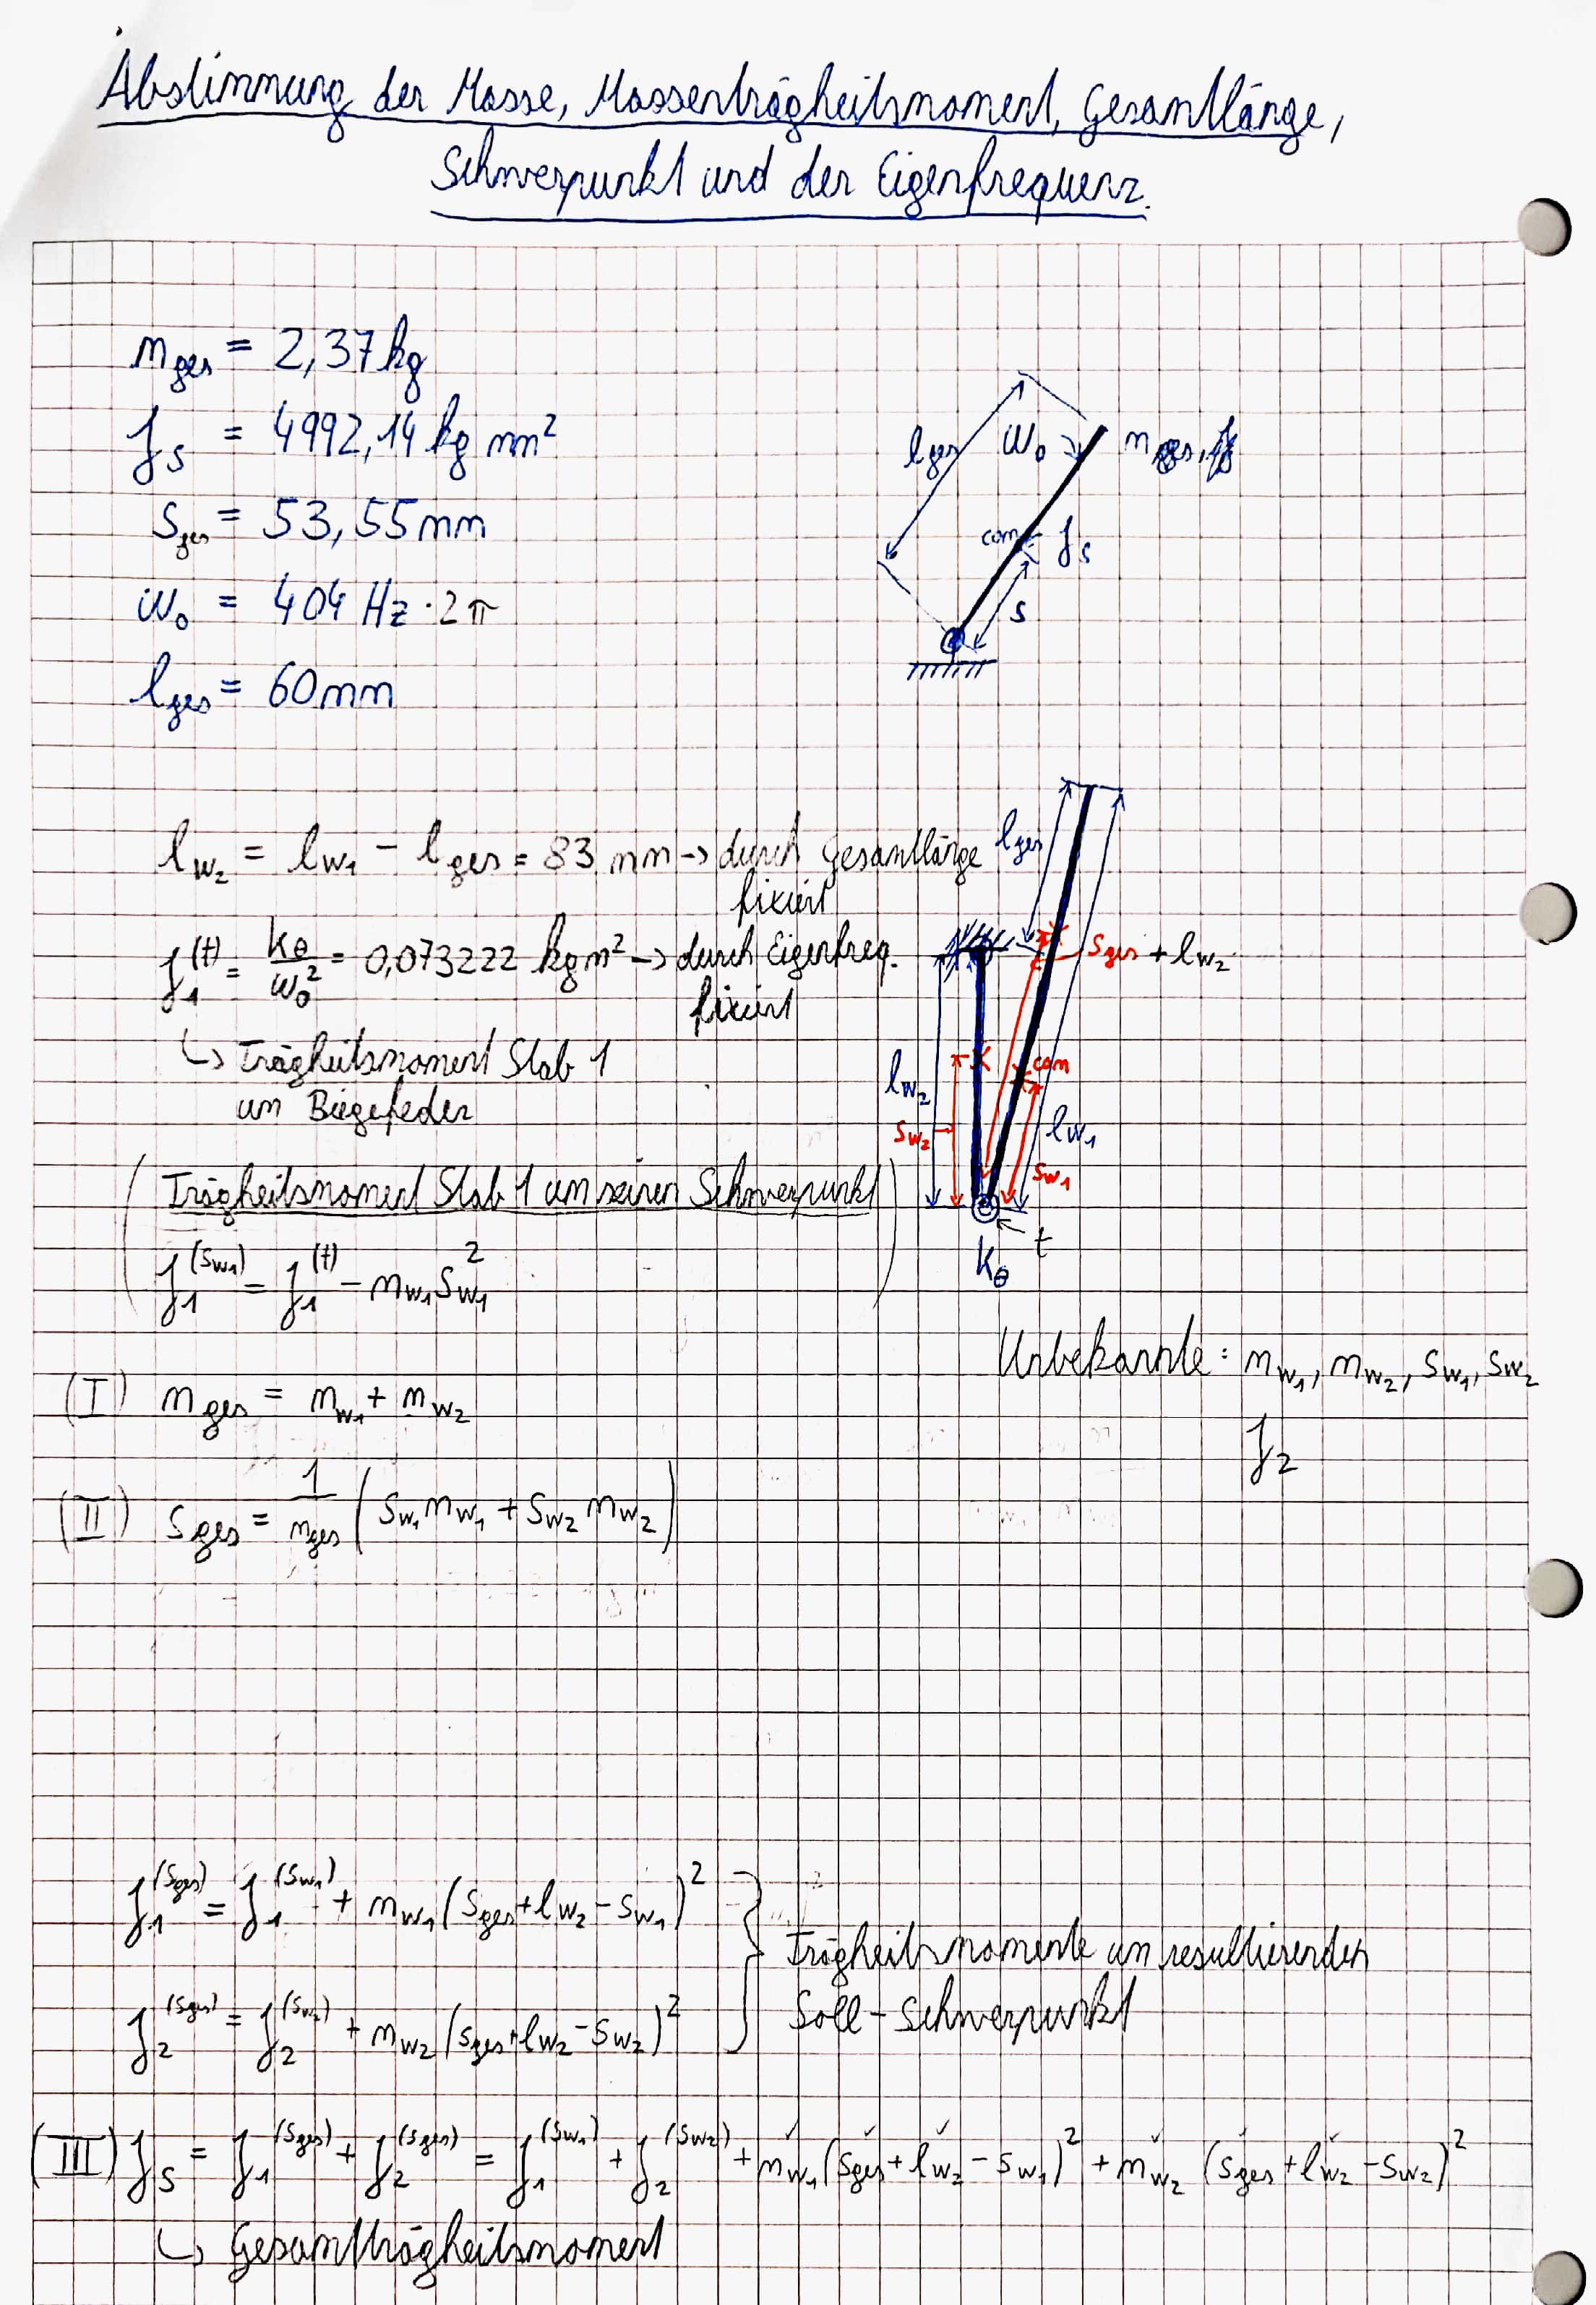 Abstimmung der Masse, Massenträgheitsmoment, Gesamtlänge,
Schwerpunkt und der Eigenfrequenz.
m_ges = 2,37 kg
J_S = 4992,14 kg mm²
s_ges = 53,55 mm
ω_0 = 404 Hz · 2π
l_ges = 60 mm
l_ges ω_0 m_ges,
com J_S
s
l_w2 = l_w1 - l_ges = 83 mm → durch Gesamtlänge
fixiert
J_1^(t) = k_θ / ω_0² = 0,073222 kg m² → durch Eigenfreq.
fixiert
↳ Trägheitsmoment Stab 1
um Biegefeder
l_ges
s_ges + l_w2
l_w2 com
s_w2 l_w1
s_w1
t
k_θ
( Trägheitsmoment Stab 1 um seinen Schwerpunkt
J_1^(s_w1) = J_1^(t) - m_w1 s_w1² )
Unbekannte: m_w1, m_w2, s_w1, s_w2
J_2
(I) m_ges = m_w1 + m_w2
(II) s_ges = 1/m_ges ( s_w1 m_w1 + s_w2 m_w2 )
J_1^(s_ges) = J_1^(s_w1) + m_w1 (s_ges + l_w2 - s_w1)²
J_2^(s_ges) = J_2^(s_w2) + m_w2 (s_ges + l_w2 - s_w2)²
} Trägheitsmomente um resultierenden
Soll-Schwerpunkt
(III) J_S = J_1^(s_ges) + J_2^(s_ges) = J_1^(s_w1) + J_2^(s_w2) + m_w1 (s_ges + l_w2 - s_w1)² + m_w2 (s_ges + l_w2 - s_w2)²
↳ Gesamtträgheitsmoment